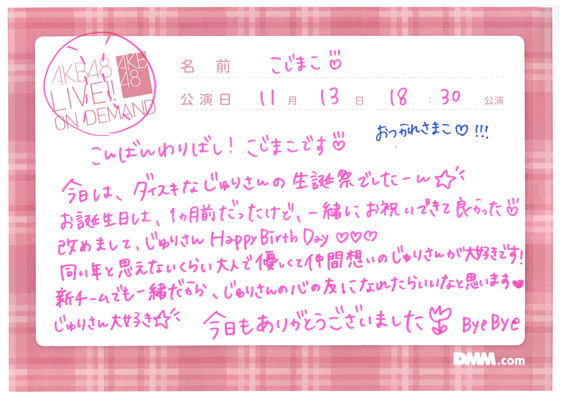 AKB48
LIVE!!
ON DEMAND
AKB
48
名前 こじまこ
公演日 11月 13日 18:30 公演
おつかれさまこ♡!!!
こんばんわりばし! こじまこです♡
今日は、ダイスキなじゅりさんの生誕祭でしたーん☆
お誕生日は、1ヵ月前だったけど、一緒にお祝いできて良かった
改めまして、じゅりさん Happy Birth Day ♡♡♡
同い年と思えないくらい大人で優しくて仲間想いのじゅりさんが大好きです!
新チームでも一緒だから、じゅりさんの心の友になれたらいいなと思います♥
じゅりさん大好き☆
今日もありがとうございました Bye Bye
DMM.com